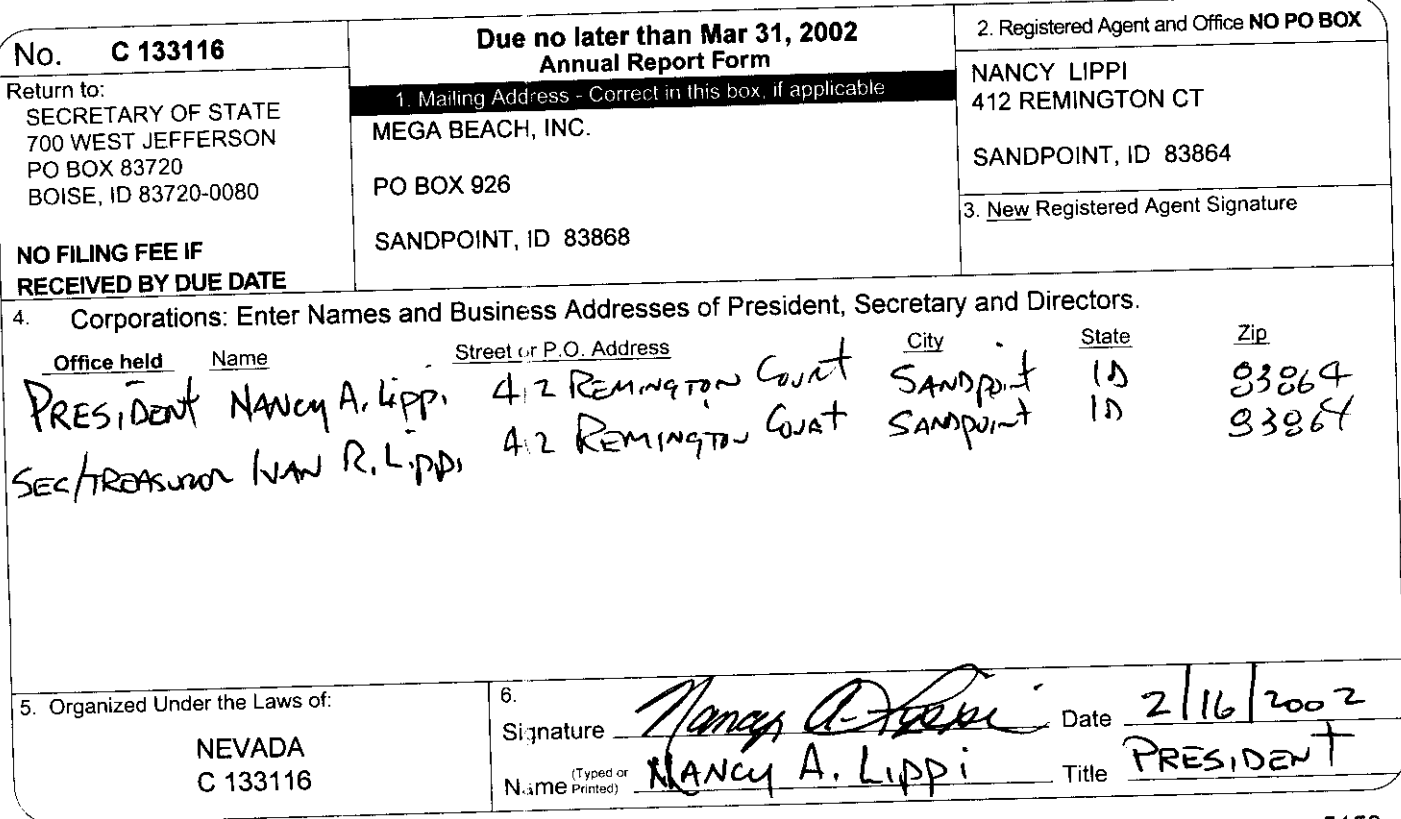 No. C 133116
Return to:
SECRETARY OF STATE
700 WEST JEFFERSON
PO BOX 83720
BOISE, ID 83720-0080
NO FILING FEE IF
RECEIVED BY DUE DATE
Due no later than Mar 31, 2002
Annual Report Form
1. Mailing Address - Correct in this box, if applicable
MEGA BEACH, INC.
PO BOX 926
SANDPOINT, ID 83868
2. Registered Agent and Office NO PO BOX
NANCY LIPPI
412 REMINGTON CT
SANDPOINT, ID 83864
3. New Registered Agent Signature
4. Corporations: Enter Names and Business Addresses of President, Secretary and Directors.
Office held Name Street or P.O. Address City State Zip
PRESIDENT NANCY A. Lippi 412 REMINGTON COURT SANDPOINT ID 83864
SEC/TREASUROR IVAN R. Lippi 412 REMINGTON COURT SANDPOINT ID 83864
5. Organized Under the Laws of:
NEVADA
C 133116
6.
Signature Nancy A. Lippi Date 2/16/2002
Name (Typed or Printed) NANCY A. LIPPI Title PRESIDENT